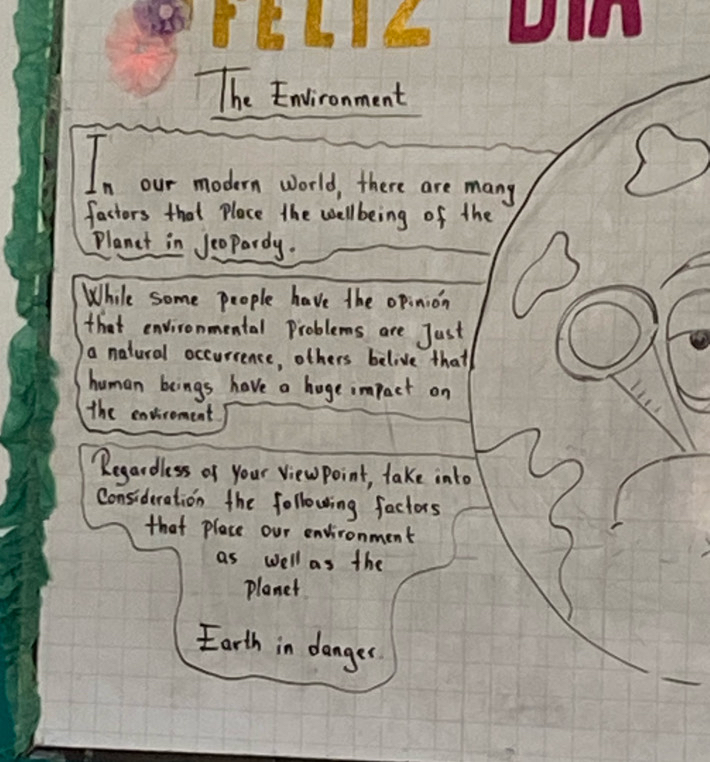 FELIZ DIA
The Environment
In our modern world, there are many
factors that place the wellbeing of the
Planet in Jeopardy.
While some people have the opinión
that environmental Problems are Just
a natural occurrence, others belive that
human beings have a huge impact on
the enviroment
Regardless of your viewpoint, take into
Consideratión the following factors
that place our environment
as well as the
planet
Earth in danger.